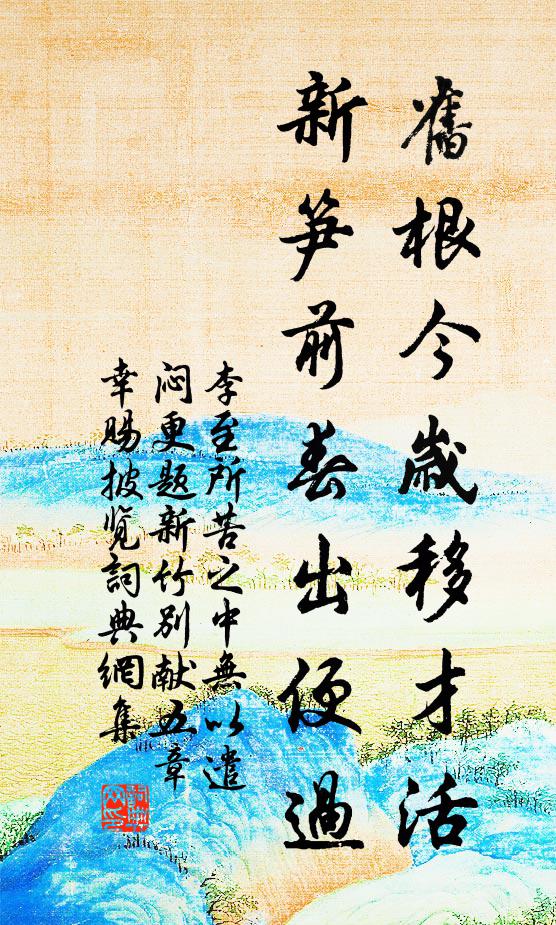 舊根今歲移才活
新笋前春出便過
李至所苦之中無以遣
闷更题新竹别献五章
幸赐披览詞典網集